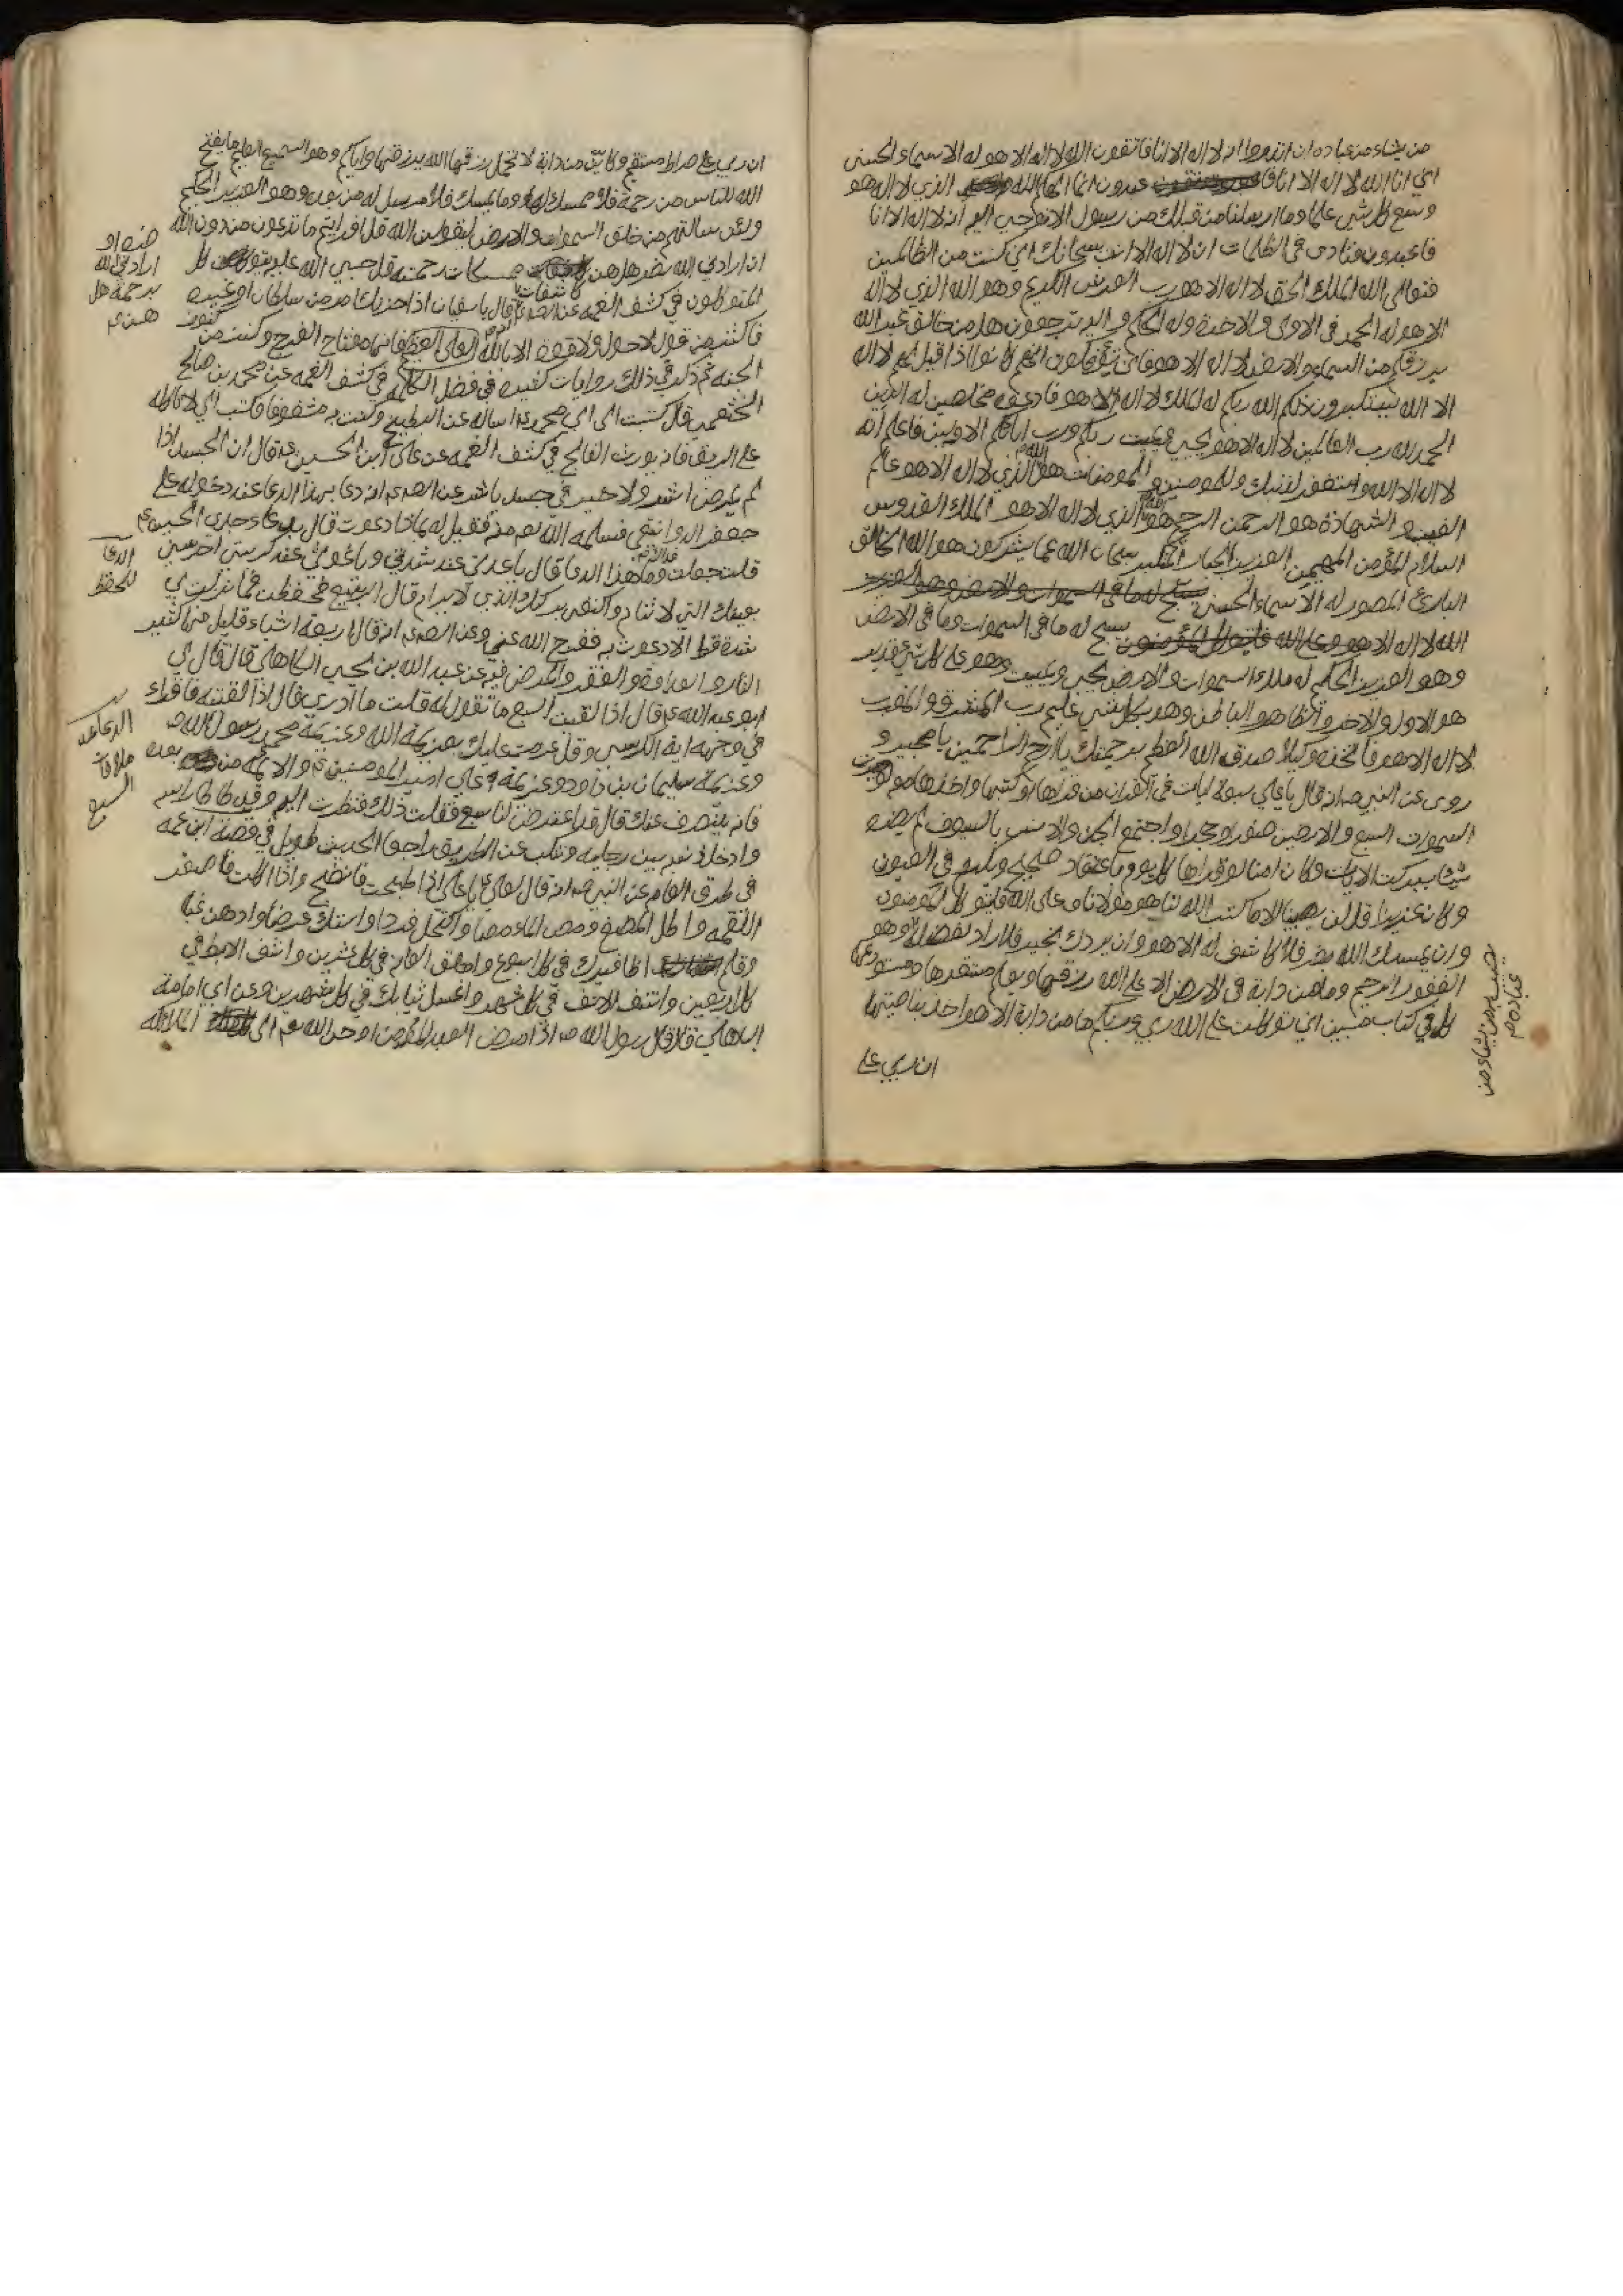 من يشاء من عباده ان انذروا انه لا اله الا انا فاتقون الله لا اله الا هو له الاسماء الحسنى
انني انا الله لا اله الا انا فاعبدون انما الهكم الله الذي لا اله هو
وسع كل شي علما وما ارسلنا من قبلك من رسول الا نوحي اليه انه لا اله الا انا
فاعبدون فنادى في الظلمات ان لا اله الا انت سبحانك اني كنت من الظالمين
فتعالى الله الملك الحق لا اله الا هو رب العرش الكريم وهو الله الذي لا اله
الا هو له الحمد في الاولى والاخرة وله الحكم واليه ترجعون هل من خالق غير الله
يرزقكم من السماء والارض لا اله الا هو فانى تؤفكون انهم كانوا اذا قيل لهم لا اله
الا الله يستكبرون ذلكم الله ربكم له الملك لا اله الا هو فادعوه مخلصين له الدين
الحمد لله رب العالمين لا اله الا هو يحيي ويميت ربكم ورب ابائكم الاولين فاعلم انه
لا اله الا الله واستغفر لذنبك وللمومنين والمومنات هو الله الذي لا اله الا هو عالم
الغيب والشهادة هو الرحمن الرحيم هو الله الذي لا اله الا هو الملك القدوس
السلام المؤمن المهيمن العزيز الجبار المتكبر سبحان الله عما يشركون هو الله الخالق
البارئ المصور له الاسماء الحسنى يسبح له ما في السموات والارض وهو العزيز
الله لا اله الا هو وعلى الله فليتوكل المؤمنون يسبح له ما في السموات وما في الارض
وهو العزيز الحكيم له ملك السموات والارض يحيي ويميت وهو على كل شي قدير
هو الاول والاخر والظاهر والباطن وهو بكل شي عليم رب المشرق والمغرب
لا اله الا هو فاتخذه وكيلا صدق الله العظيم برحمتك يا ارحم الراحمين يا مجيد و
روى عن النبي صـ انه قال يا علي سبعة ايات في القران من قراها او كتبها واخذها معه لو صيرت
السموات السبع والارضين صفرا وحجرا واجتمع الجن والانس بالسيوف لم يضره
شيئا ببركت الايات وكان امنا لو قراها كل يوم باعتقاد صحيح
ولا نعذبنا قل لن يصيبنا الا ما كتب الله لنا هو مولانا وعلى الله فليتوكل المومنون
وان يمسسك الله بضر فلا كاشف له الا هو وان يردك بخير فلا راد لفضله وهو
يصيب به من يشاء من
عباده م
الغفور الرحيم وما من دابة في الارض الا على الله رزقها ويعلم مستقرها ومستودعها
كل في كتاب مبين اني توكلت على الله ربي وربكم ما من دابة الا هو اخذ بناصيتها
ان ربي على
ان ربي على صراط مستقيم وكاين من دابة لا تحمل رزقها الله يرزقها واياكم وهو السميع العليم ما يفتح
الله للناس من رحمة فلا ممسك لها وما يمسك فلا مرسل له من بعده وهو العزيز الحكيم
ولئن سالتهم من خلق السموات والارض ليقولن الله قل افرايتم ما تدعون من دون الله
ان ارادني الله بضر هل هن كاشفات ممسكات رحمته قل حسبي الله عليه يتوكل
ضره او
ارادني الله
برحمة هل
هن م
المتوكلون في كشف الغمه عن الصادق قال يا سفيان اذا حزنك امر من سلطان او غيره
فاكثر من قول لا حول ولا قوة الا بالله العلي العظيم فانها مفتاح الفرج وكنز من كنوز
الجنه ثم ذكر في ذلك روايات كثيره في فضل الكلمة في كشف الغمه عن محمد بن صالح
الخثعمي قال كتبت الى ابي محمد ع اساله عن البطيخ وكنت به مشغوفا فكتب الي لا تاكله
على الريق فانه يورث الفالج في كشف الغمه عن علي ابن الحسين ع قال ان الجسد اذا
لم يمرض اشر ولا خير في جسد ياشر عن الصادق انه دعا بهذا الدعا عند دخوله على
جعفر الدوانيقي فسلمه الله تعم منه فقيل له بماذا دعوت قال بدعاء جدي الحسين ع
قلت جعلت فداك وما هذا الدعا قال يا عدتي عند شدتي ويا غوثي عند كربتي احرسني
الدعآ
للحفظ
بعينك التي لا تنام واكنفني بركنك الذي لا يرام قال الربيع فحفظت فما نزلت بي
شدة قط الا دعوت به ففرج الله عني وعن الصادق انه قال اربعة اشياء قليل منها كثير
النار والعداوة والفقر والمرض فيه عن عبد الله بن يحيى الكاهلي قال قال لي
ابو عبد الله ع قال اذا لقيت السبع ما تقول له قلت ما ادري قال اذا لقيته فاقراء
في وجهه اية الكرسي وقل عزمت عليك بعزيمة الله وعزيمة محمد رسول الله
الدعا عند
ملاقات
السبع
وعزيمة سليمان بن داود وعزيمة علي امير المومنين ع والائمه من بعده
فانه ينصرف عنك قال قد اعترض لنا سبع فقلت ذلك فنظرت اليه وقد طاطا راسه
وادخل ذنبه بين رجليه وتنكب عن الطريق راجعا الحديث طويل في قصة ابن عمه
في طرق العام عن النبي صـ انه قال لعلي ع يا علي اذا طبخت فانضج واذا اكلت فاصغر
اللقمه واطل المضغ ومص الماء مصا واكتحل فردا واستك عرضا وادهن غبا
وقلم اظافيرك في كل اسبوع واحلق العانه في كل عشرين وانتف الابط في
كل اربعين وانتف الانف في كل شهر واغسل ثيابك في كل شهرين وعن ابي امامة
الباهلي قال قال رسول الله صـ اذا مرض العبد المؤمن اوحى الله تعم الى الملائكه